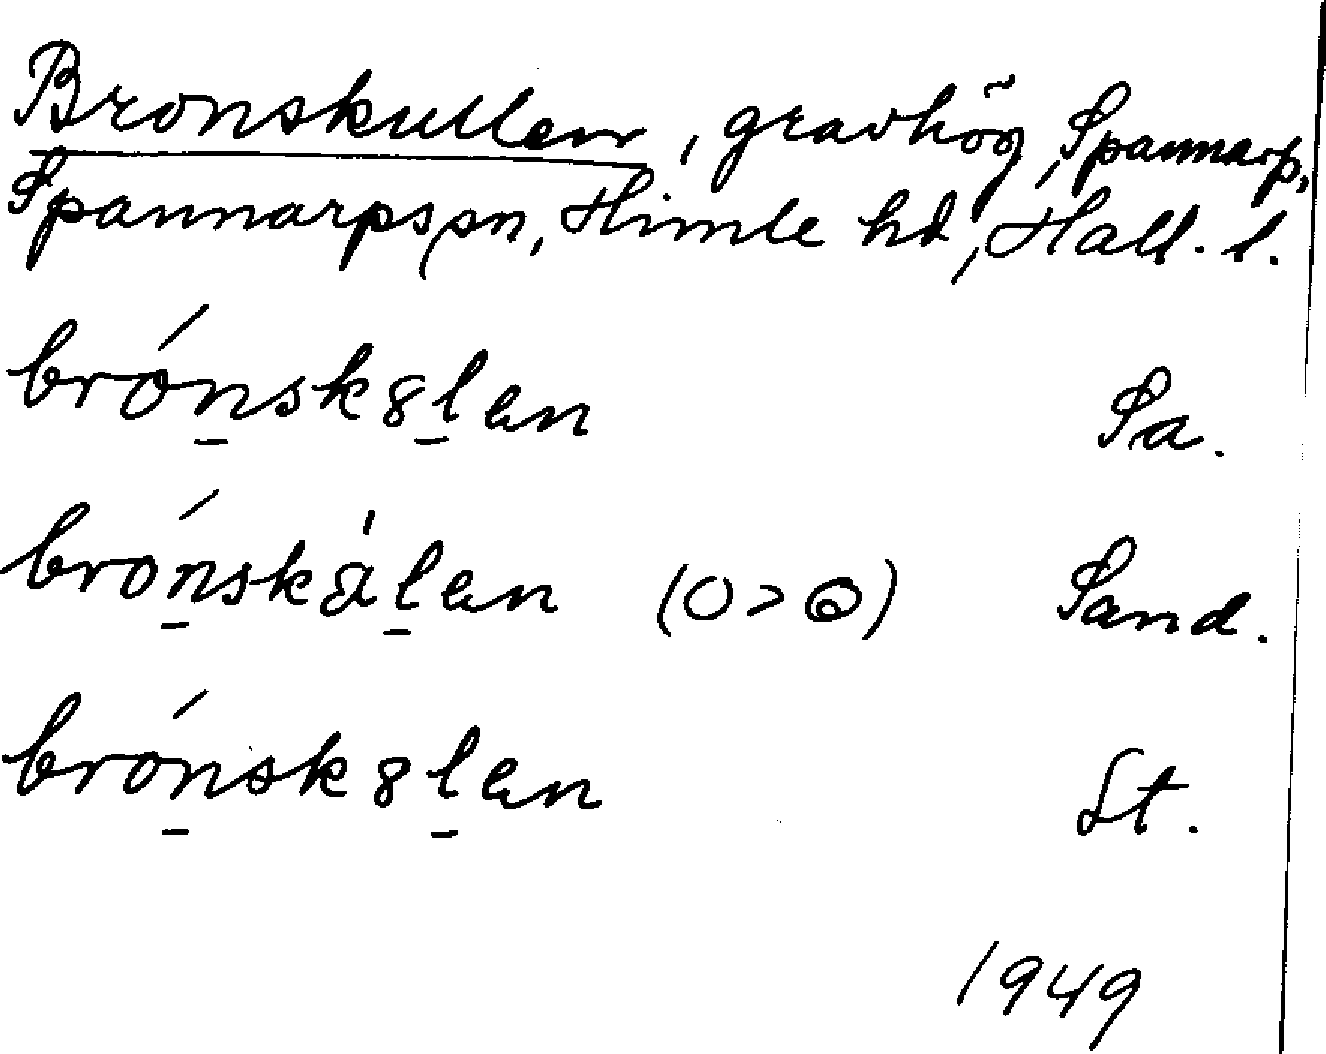 Bronskullen, gravhög, Spannarp,
Spannarps sn, Himle hd, Hall. l.
brónsk8len Sa.
brónskålen (o>ꝋ) Sand.
brónsk8len St.
1949